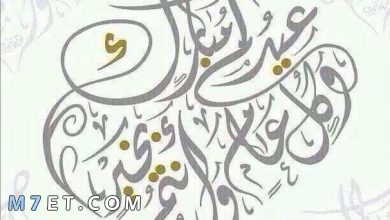 عيدكم مبارك
وكل عام وأنتم بخير
M7ET.COM